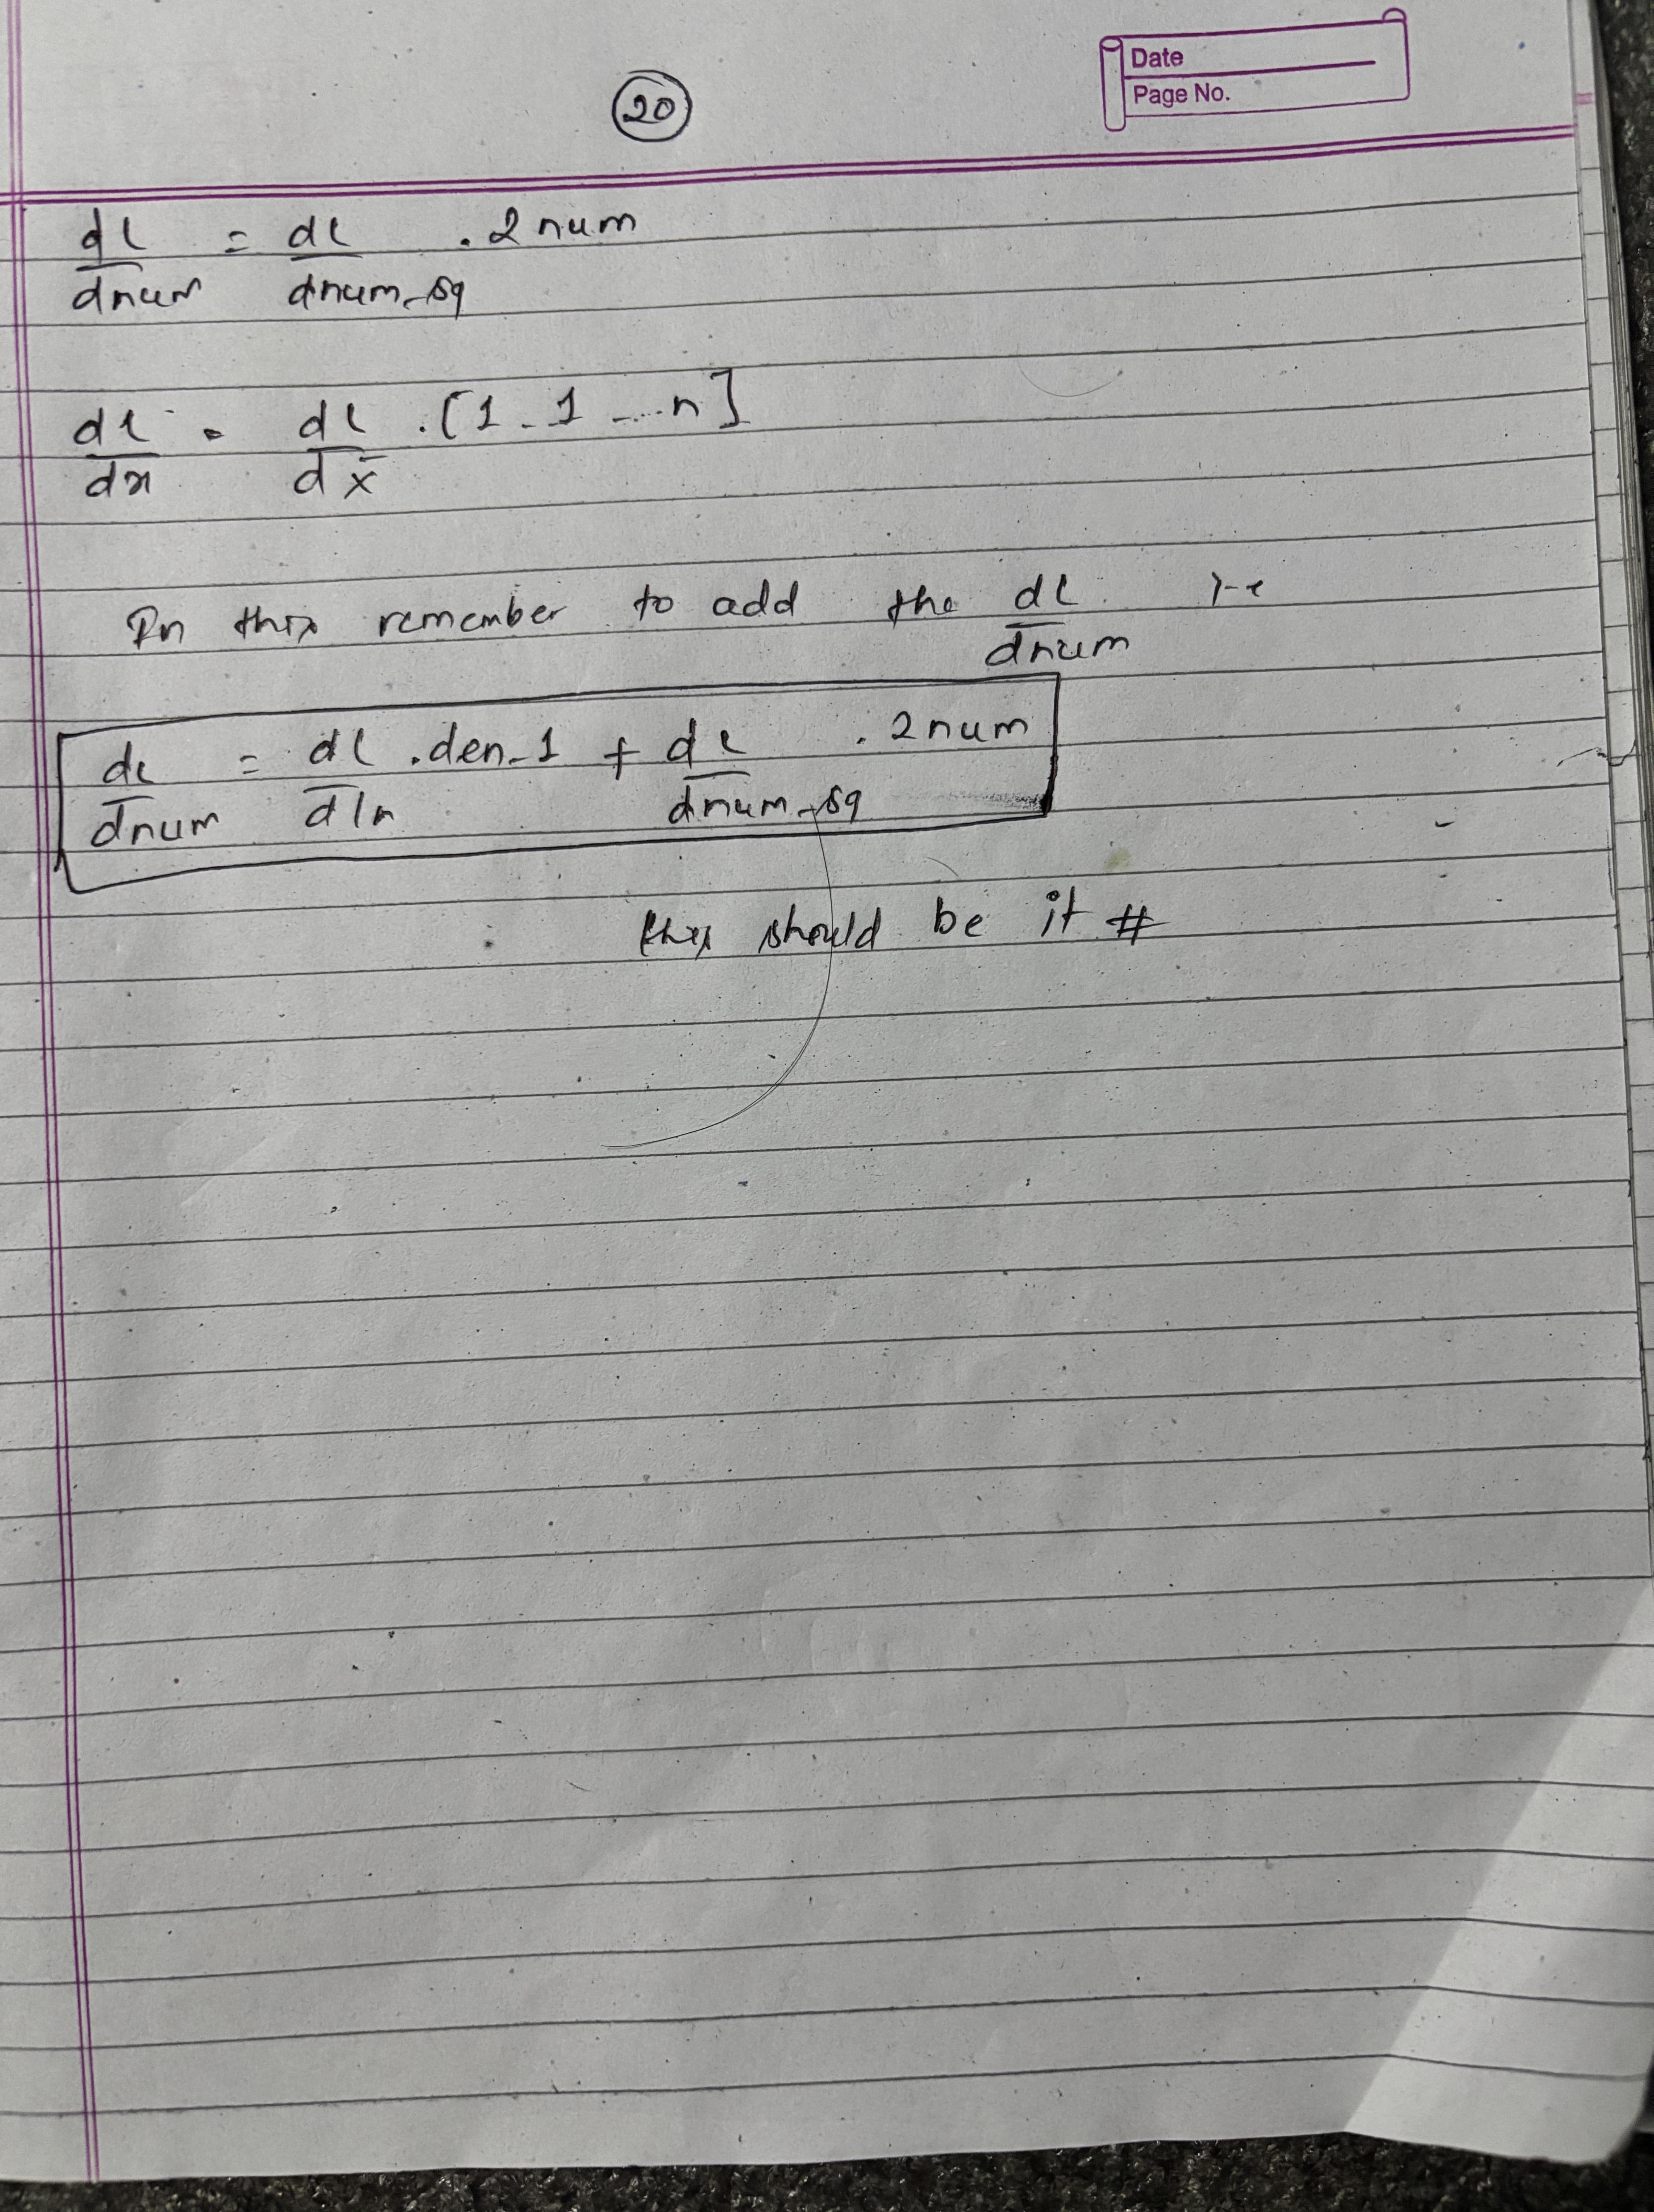 20
Date
Page No.
dl/dnum = dl/dnum_sq . 2 num
dl/dx = dl/dx̄ . [1 _ 1 _ ... n]
In this remember to add the dl/dnum
dl/dnum = dl/dln . den_1 + dl/dnum_sq . 2 num
this should be it #